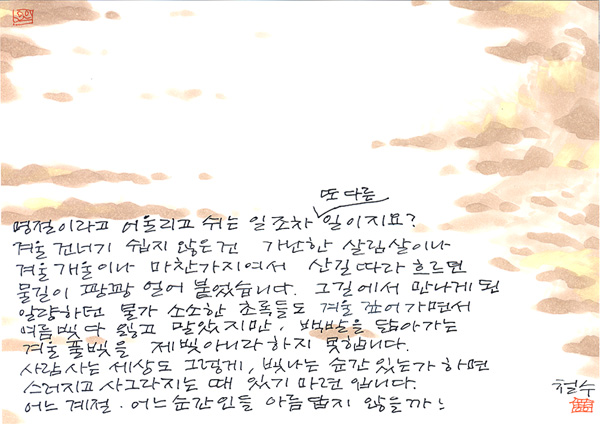 또 다른
명절이라고 어울리고 쉬는 일조차 일이지요?
겨울 건너기 쉽지 않은건 가난한 살림살이나
겨울 개울이나 마찬가지여서 산길따라 흐르던
물길이 꽝꽝 얼어 붙었습니다. 그길에서 만나게 된
알량하던 물가 소소한 초록들도 겨울 깊어가면서
여름빛 다 잃고 말았지만, 백발을 닮아가는
겨울 풀빛을 제빛아니라하지 못합니다.
사람 사는 세상도 그렇게, 빛나는 순간 있는가 하면
스러지고 사그라지는 때 있기 마련 입니다.
어느 계절·어느 순간인들 아름답지 않을까!
철수